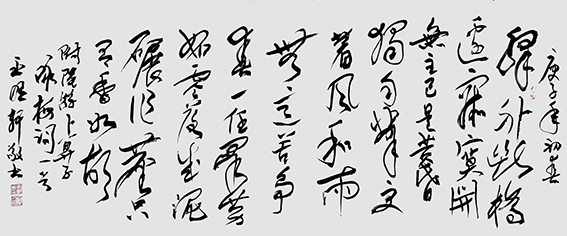 庚子年初春
驛外斷橋
邊寂寞開
無主已是黄昏
獨自愁更
著風和雨
無意苦爭
春一任羣芳
妒零落成泥
碾作塵只
有香如故
陸游卜算子
咏梅詞一首
軒敬書